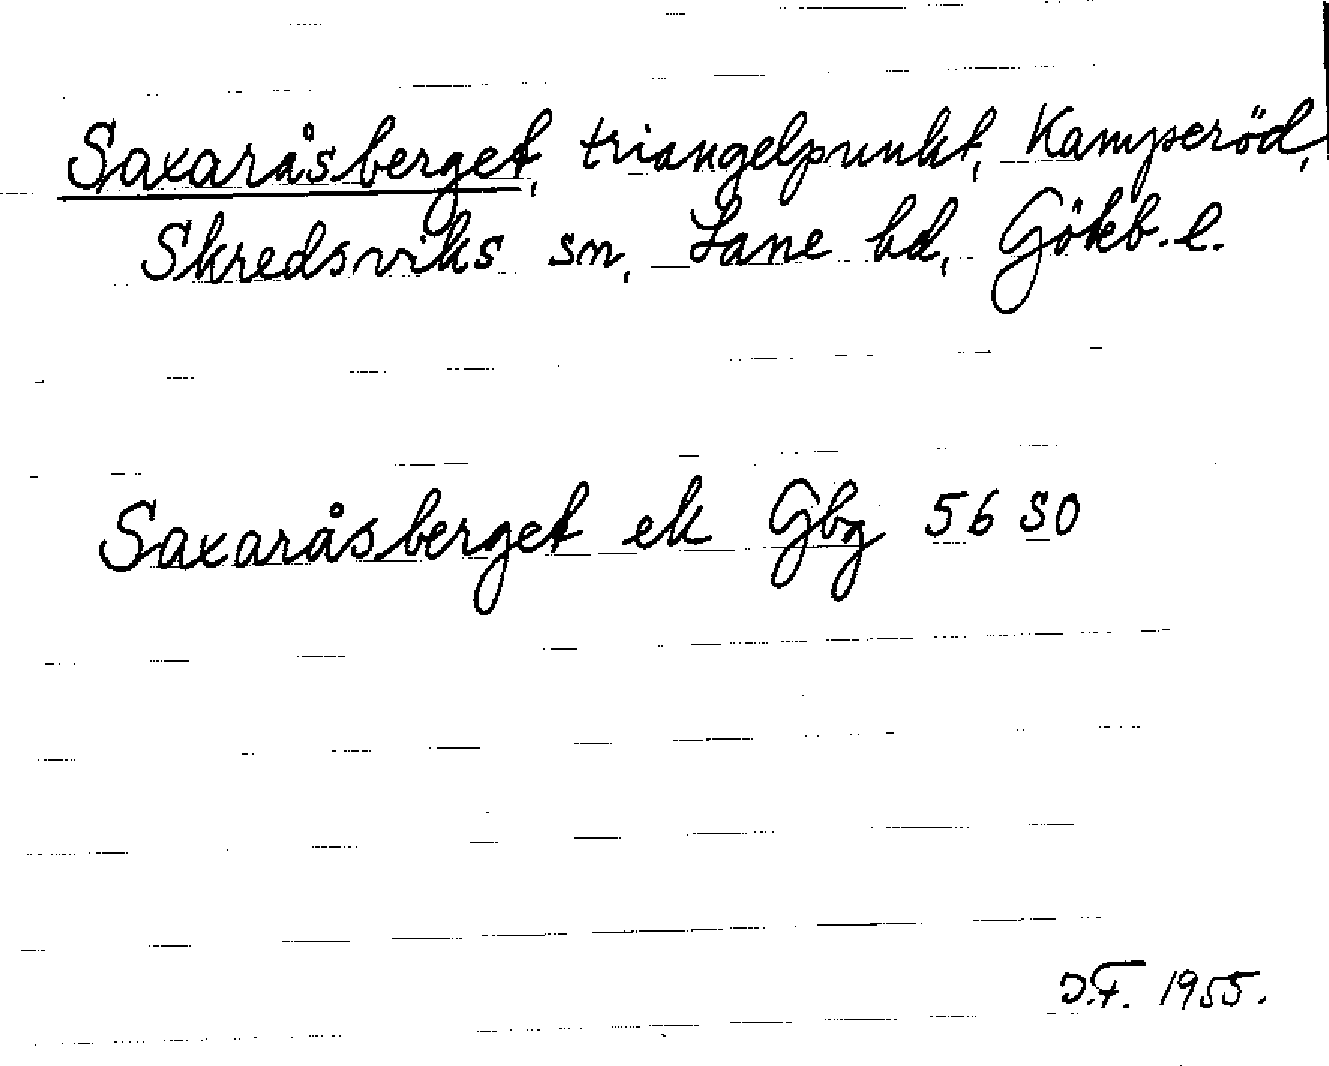 Saxaråsberget, triangelpunkt, Kamperöd,
Skredsviks sn, Lane hd, Gökb. l.
Saxaråsberget ek Gbg 56 SO
J.F. 1955.